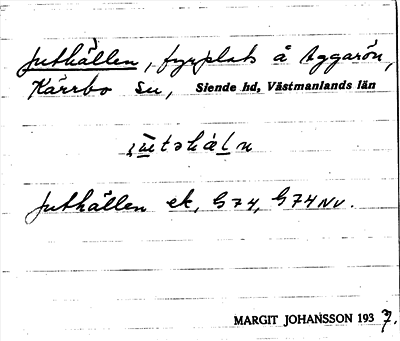 Juthällen, fyrplats å Aggarön,
Kärrbo sn, Siende hd, Västmanlands län
Juthällen ek, G74, G74NV.
MARGIT JOHANSSON 1937.